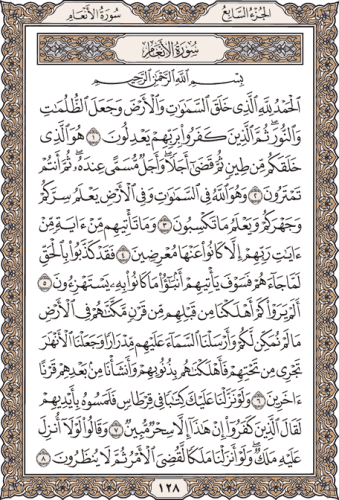 سُورَةُ الأَنْعَامِ الجُزْءُ السَّابِعُ
سُورَةُ الأَنْعَامِ
بِسْمِ ٱللَّهِ ٱلرَّحْمَٰنِ ٱلرَّحِيمِ
ٱلْحَمْدُ لِلَّهِ ٱلَّذِى خَلَقَ ٱلسَّمَٰوَٰتِ وَٱلْأَرْضَ وَجَعَلَ ٱلظُّلُمَٰتِ
وَٱلنُّورَ ۖ ثُمَّ ٱلَّذِينَ كَفَرُوا۟ بِرَبِّهِمْ يَعْدِلُونَ ١ هُوَ ٱلَّذِى
خَلَقَكُم مِّن طِينٍ ثُمَّ قَضَىٰٓ أَجَلًا ۖ وَأَجَلٌ مُّسَمًّى عِندَهُۥ ۖ ثُمَّ أَنتُمْ
تَمْتَرُونَ ٢ وَهُوَ ٱللَّهُ فِى ٱلسَّمَٰوَٰتِ وَفِى ٱلْأَرْضِ ۖ يَعْلَمُ سِرَّكُمْ
وَجَهْرَكُمْ وَيَعْلَمُ مَا تَكْسِبُونَ ٣ وَمَا تَأْتِيهِم مِّنْ ءَايَةٍ مِّنْ
ءَايَٰتِ رَبِّهِمْ إِلَّا كَانُوا۟ عَنْهَا مُعْرِضِينَ ٤ فَقَدْ كَذَّبُوا۟ بِٱلْحَقِّ
لَمَّا جَآءَهُمْ ۖ فَسَوْفَ يَأْتِيهِمْ أَنۢبَٰٓؤُا۟ مَا كَانُوا۟ بِهِۦ يَسْتَهْزِءُونَ ٥
أَلَمْ يَرَوْا۟ كَمْ أَهْلَكْنَا مِن قَبْلِهِم مِّن قَرْنٍ مَّكَّنَّٰهُمْ فِى ٱلْأَرْضِ
مَا لَمْ نُمَكِّن لَّكُمْ وَأَرْسَلْنَا ٱلسَّمَآءَ عَلَيْهِم مِّدْرَارًا وَجَعَلْنَا ٱلْأَنْهَٰرَ
تَجْرِى مِن تَحْتِهِمْ فَأَهْلَكْنَٰهُم بِذُنُوبِهِمْ وَأَنشَأْنَا مِنۢ بَعْدِهِمْ قَرْنًا
ءَاخَرِينَ ٦ وَلَوْ نَزَّلْنَا عَلَيْكَ كِتَٰبًا فِى قِرْطَاسٍ فَلَمَسُوهُ بِأَيْدِيهِمْ
لَقَالَ ٱلَّذِينَ كَفَرُوٓا۟ إِنْ هَٰذَآ إِلَّا سِحْرٌ مُّبِينٌ ٧ وَقَالُوا۟ لَوْلَآ أُنزِلَ
عَلَيْهِ مَلَكٌ ۖ وَلَوْ أَنزَلْنَا مَلَكًا لَّقُضِىَ ٱلْأَمْرُ ثُمَّ لَا يُنظَرُونَ ٨
١٢٨